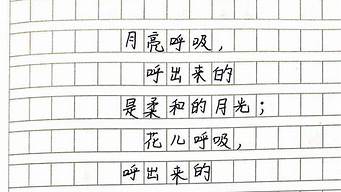 月亮呼吸，
呼出来的
是柔和的月光；
花儿呼吸，
呼出来的